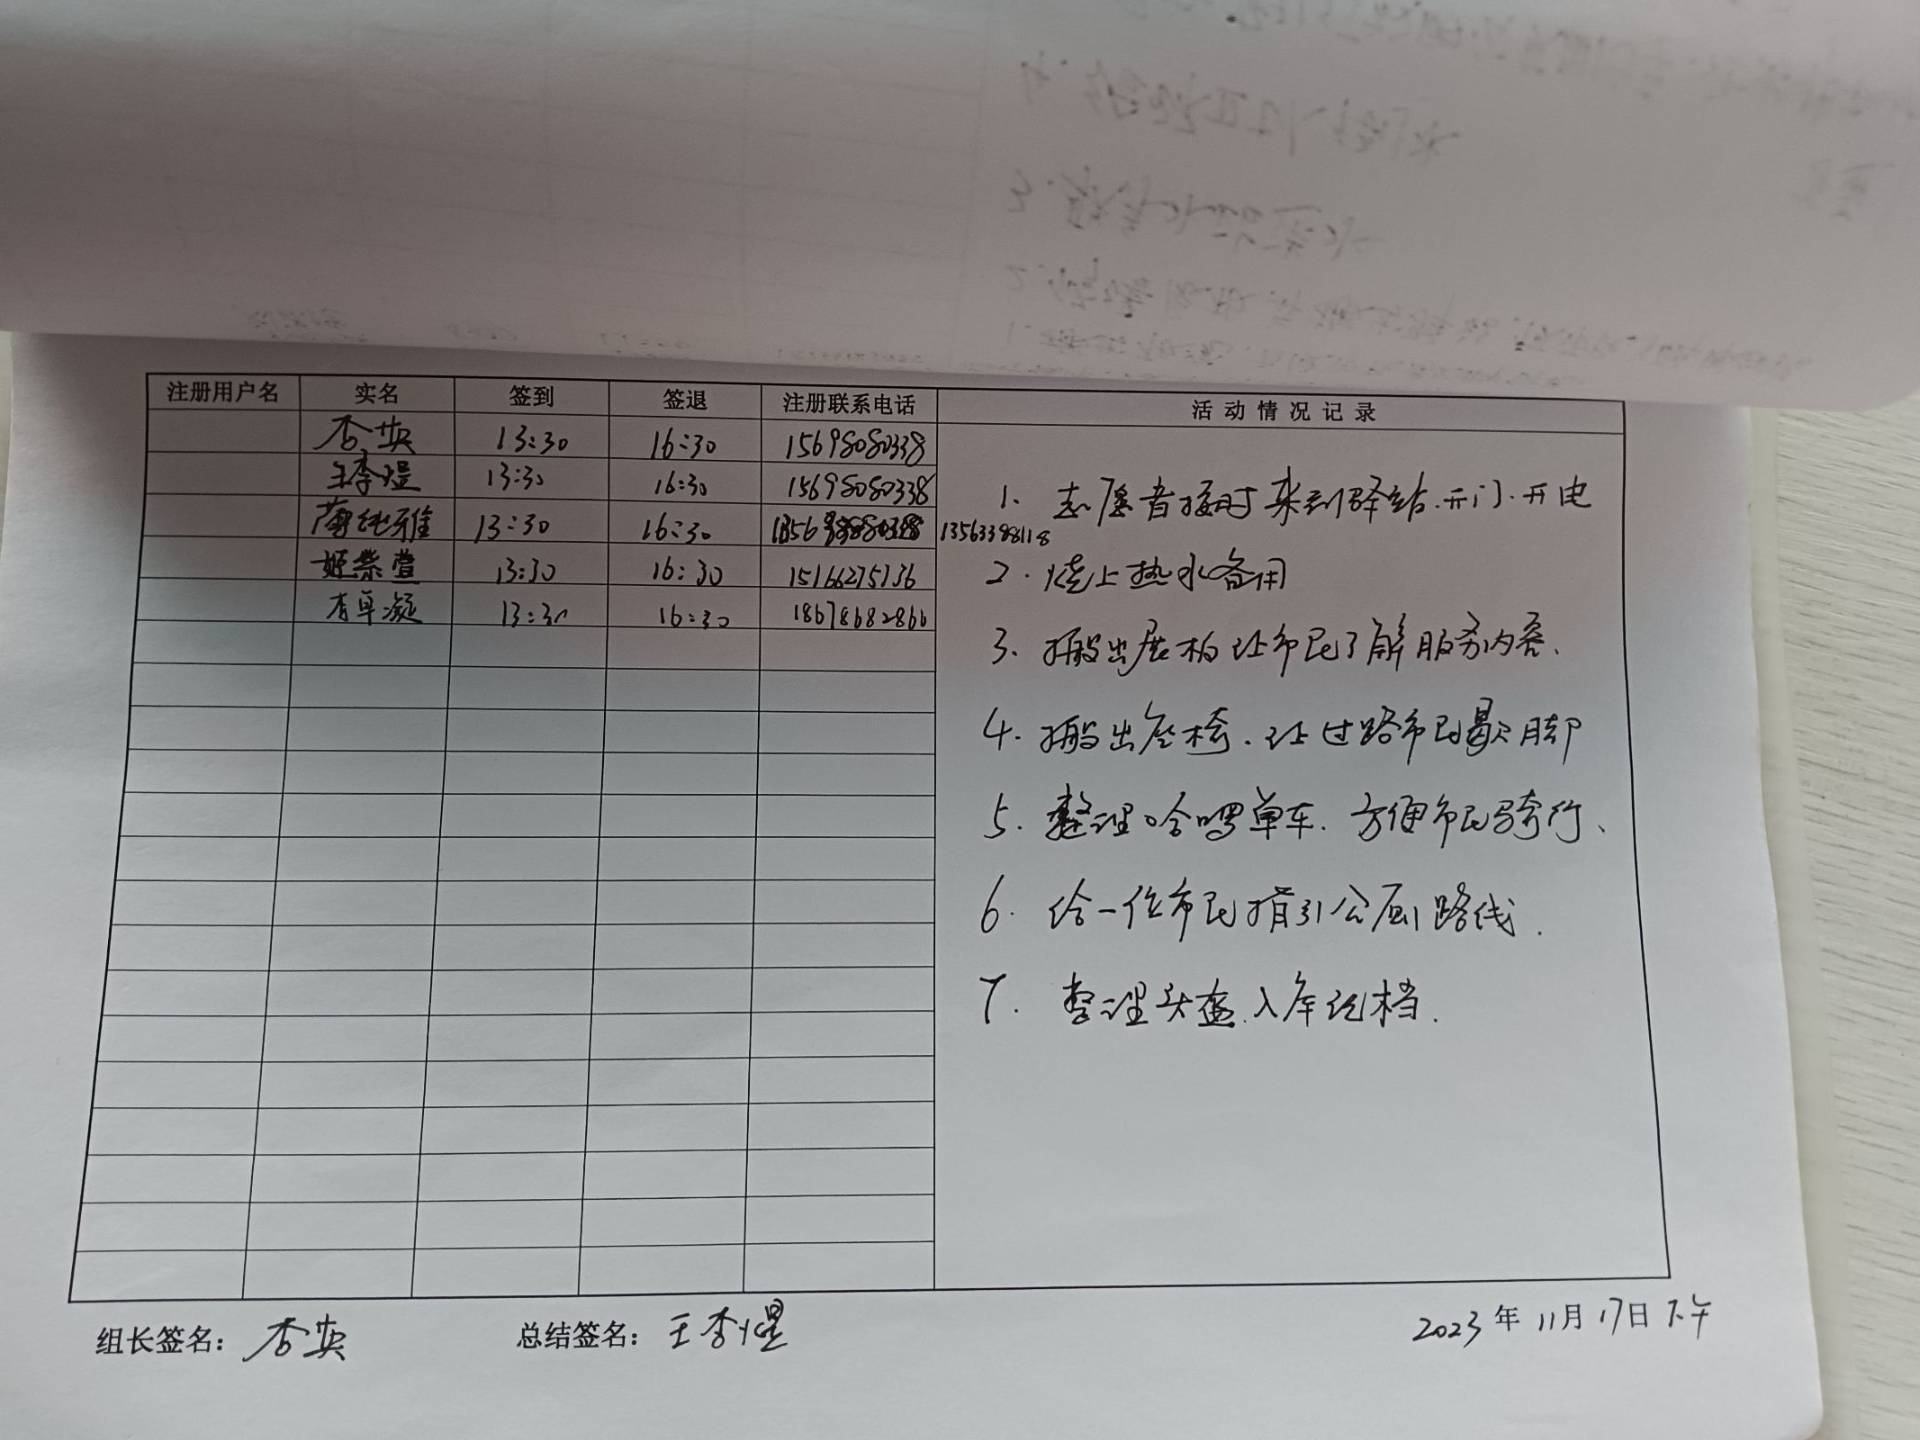 注册用户名 实名 签到 签退 注册联系电话 活动情况记录
13:30 16:30 15698080338
王李煜 13:30 16:30 15698080338
13:30 16:30 13563398118
姬紫萱 13:30 16:30 15166275136
李卓凝 13:30 16:30 18678682866
1. 志愿者按时来到驿站.开门.开电
2. 烧上热水备用
3. 搬出展柏让市民了解服务内容、
4. 搬出座椅.让过路市民歇脚
5. 整理哈啰单车.方便市民骑行、
6. 给一位市民指引公厕路线.
7. 整理头盔.入库记档.
组长签名： 总结签名：王李煜
2023年11月17日下午